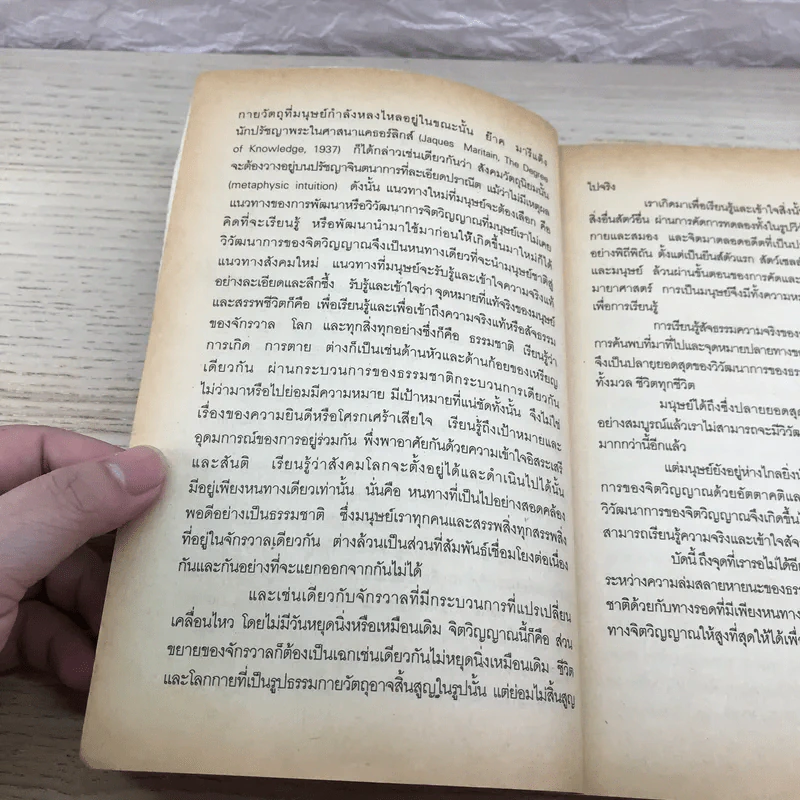 กายวัตถุที่มนุษย์กำลังหลงไหลอยู่ในขณะนั้น ย๊าค มาริแต็ง
นักปรัชญาพระในศาสนาแคธอร์ลิกส์ (Jaques Maritain, The Degree
of Knowledge, 1937) ก็ได้กล่าวเช่นเดียวกันว่า สังคมวัตถุนิยมนั้น
จะต้องวางอยู่บนปรัชญาจินตนาการที่ละเอียดปราณีต แม้ว่าไม่มีเหตุผล
(metaphysic intuition) ดังนั้น แนวทางใหม่ที่มนุษย์จะต้องเลือก คือ
แนวทางของการพัฒนาหรือวิวัฒนาการจิตวิญญาณที่มนุษย์เราไม่เคย
คิดที่จะเรียนรู้ หรือพัฒนานำมาใช้มาก่อนให้เกิดขึ้นมาใหม่ก็ได้
วิวัฒนาการของจิตวิญญาณจึงเป็นหนทางเดียวที่จะนำมนุษย์ชาติสู่
แนวทางสังคมใหม่ แนวทางที่มนุษย์จะรับรู้และเข้าใจความจริงแท้
อย่างละเอียดและลึกซึ้ง รับรู้และเข้าใจว่า จุดหมายที่แท้จริงของมนุษย์
และสรรพชีวิตก็คือ เพื่อเรียนรู้และเพื่อเข้าถึงความจริงแท้หรือสัจธรรม
ของจักรวาล โลก และทุกสิ่งทุกอย่างซึ่งก็คือ ธรรมชาติ เรียนรู้ว่า
การเกิด การตาย ต่างก็เป็นเช่นด้านหัวและด้านก้อยของเหรียญ
เดียวกัน ผ่านกระบวนการของธรรมชาติกระบวนการเดียวกัน
ไม่ว่ามาหรือไปย่อมมีความหมาย มีเป้าหมายที่แน่ชัดทั้งนั้น จึงไม่ใช่
เรื่องของความยินดีหรือโศรกเศร้าเสียใจ เรียนรู้ถึงเป้าหมายและ
อุดมการณ์ของการอยู่ร่วมกัน พึ่งพาอาศัยกันด้วยความเข้าใจอิสระเสรี
และสันติ เรียนรู้ว่าสังคมโลกจะตั้งอยู่ได้และดำเนินไปได้นั้น
มีอยู่เพียงหนทางเดียวเท่านั้น นั่นคือ หนทางที่เป็นไปอย่างสอดคล้อง
พอดีอย่างเป็นธรรมชาติ ซึ่งมนุษย์เราทุกคนและสรรพสิ่งทุกสรรพสิ่ง
ที่อยู่ในจักรวาลเดียวกัน ต่างล้วนเป็นส่วนที่สัมพันธ์เชื่อมโยงต่อเนื่อง
กันและกันอย่างที่จะแยกออกจากกันไม่ได้
และเช่นเดียวกับจักรวาลที่มีกระบวนการที่แปรเปลี่ยน
เคลื่อนไหว โดยไม่มีวันหยุดนิ่งหรือเหมือนเดิม จิตวิญญาณนี้ก็คือ ส่วน
ขยายของจักรวาลก็ต้องเป็นเฉกเช่นเดียวกันไม่หยุดนิ่งเหมือนเดิม ชีวิต
และโลกกายที่เป็นรูปธรรมกายวัตถุอาจสิ้นสูญในรูปนั้น แต่ย่อมไม่สิ้นสูญ
ไปจริง
เราเกิดมาเพื่อเรียนรู้และเข้าใจสิ่งนั้
สิ่งอื่นสัตว์อื่น ผ่านการคัดการทดลองทั้งในรูปวิ
กายและสมอง และจิตมาตลอดอดีตที่เป็นป
อย่างพิถีพิถัน ตั้งแต่เป็นยีนส์ตัวแรก สัตว์เซลล์
และมนุษย์ ล้วนผ่านขั้นตอนของการคัดและ
มายาศาสตร์ การเป็นมนุษย์จึงมีทั้งความห
เพื่อการเรียนรู้
การเรียนรู้สัจธรรมความจริงของ
การค้นพบที่มาที่ไปและจุดหมายปลายทางข
จึงเป็นปลายยอดสุดของวิวัฒนาการของธร
ทั้งมวล ชีวิตทุกชีวิต
มนุษย์ได้ถึงซึ่งปลายยอดสุด
อย่างสมบูรณ์แล้วเราไม่สามารถจะมีวิวัฒ
มากกว่านี้อีกแล้ว
แต่มนุษย์ยังอยู่ห่างไกลยิ่งนั
การของจิตวิญญาณด้วยอัตตาคติและ
วิวัฒนาการของจิตวิญญาณจึงเกิดขึ้นไ
สามารถเรียนรู้ความจริงและเข้าใจสัจ
บัดนี้ ถึงจุดที่เรารอไม่ได้อี
ระหว่างความล่มสลายหายนะของธร
ชาติด้วยกับทางรอดที่มีเพียงหนทาง
ทางจิตวิญญาณให้สูงที่สุดให้ได้เพื่อ